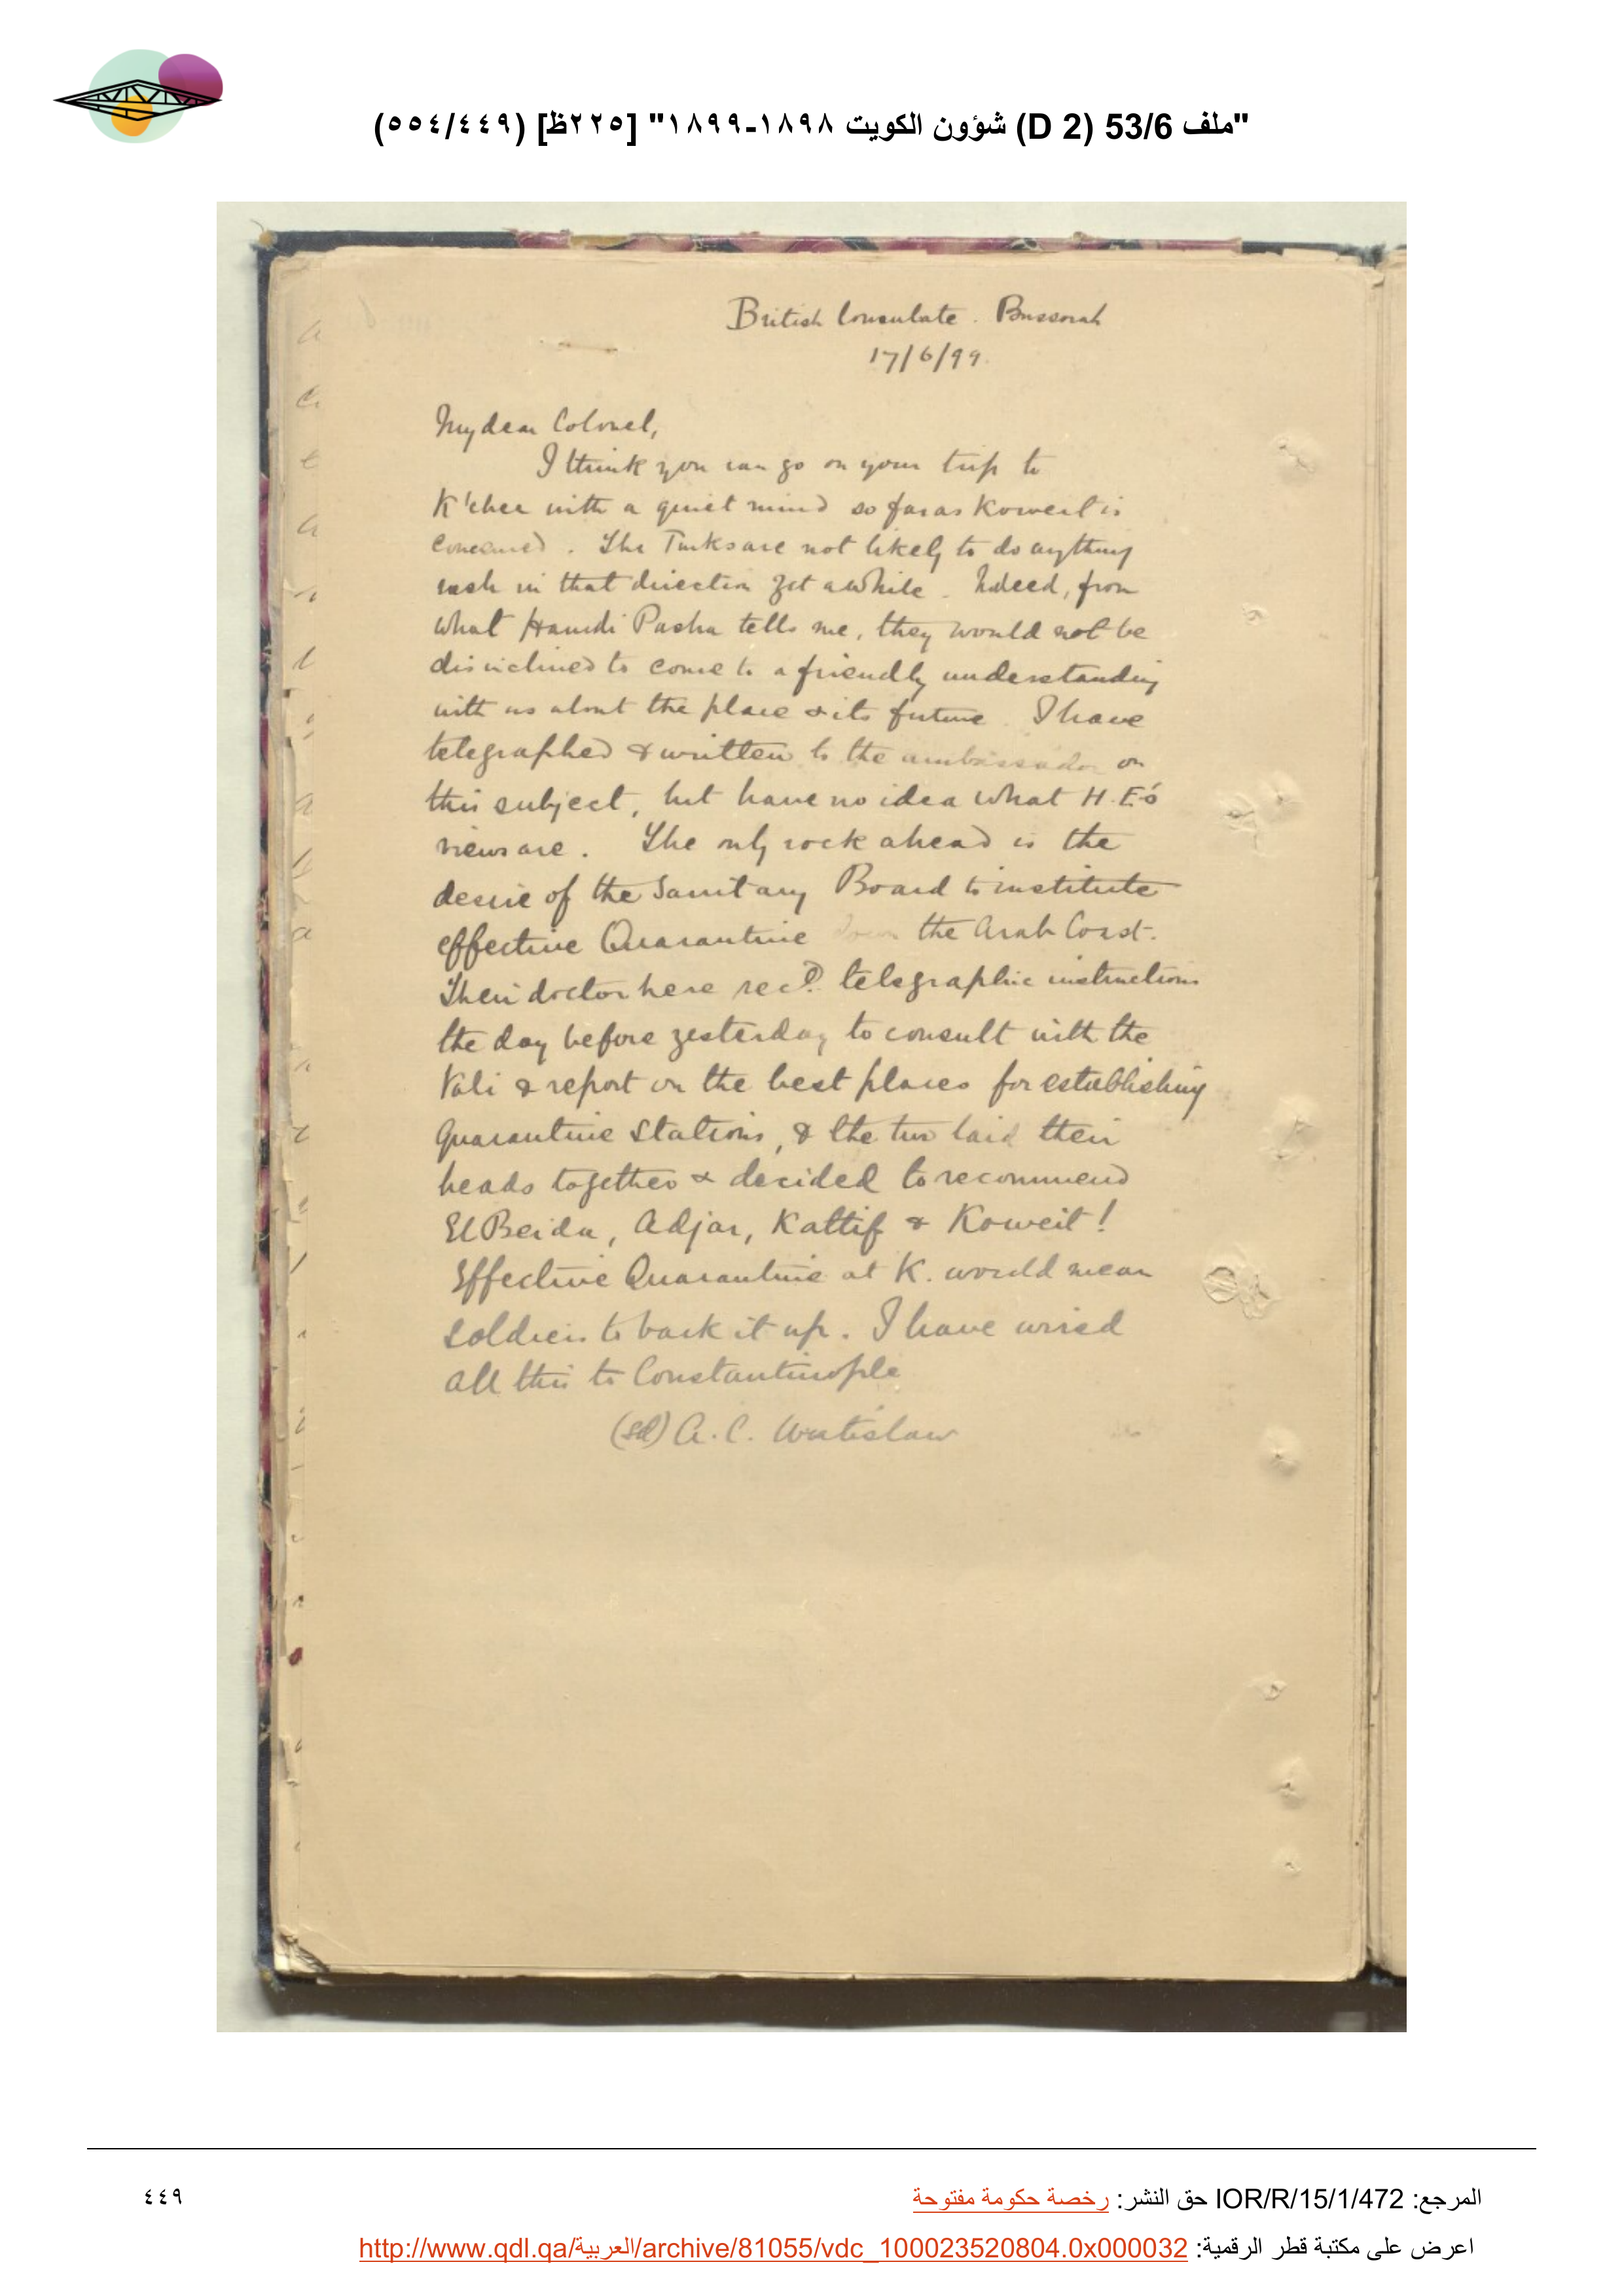 "ملف 53/6 (D 2) شؤون الكويت ١٨٩٨-١٨٩٩" [٢٢٥ظ] (٥٥٤/٤٤٩)
British Consulate. Bussorah
17/6/99.
My dear Colonel,
I think you can go on your trip to
K'cher with a quiet mind so far as Koweit is
concerned. The Turks are not likely to do anything
rash in that direction yet awhile. Indeed, from
what Hamdi Pasha tells me, they would not be
disinclined to come to a friendly understanding
with us about the place & its future. I have
telegraphed & written to the ambassador on
this subject, but have no idea what H.E's
views are. The only rock ahead is the
desire of the Sanitary Board to institute
effective Quarantine down the Arab Coast.
Their doctor here recd. telegraphic instructions
the day before yesterday to consult with the
Vali & report on the best places for establishing
Quarantine Stations, & the two laid their
heads together & decided to recommend
El Beida, Adjar, Kattif & Koweit!
Effective Quarantine at K. would mean
soldiers to back it up. I have wired
all this to Constantinople
(sd) A. C. Wratislaw
المرجع: IOR/R/15/1/472 حق النشر: رخصة حكومة مفتوحة
٤٤٩
اعرض على مكتبة قطر الرقمية: http://www.qdl.qa/العربية/archive/81055/vdc_100023520804.0x000032